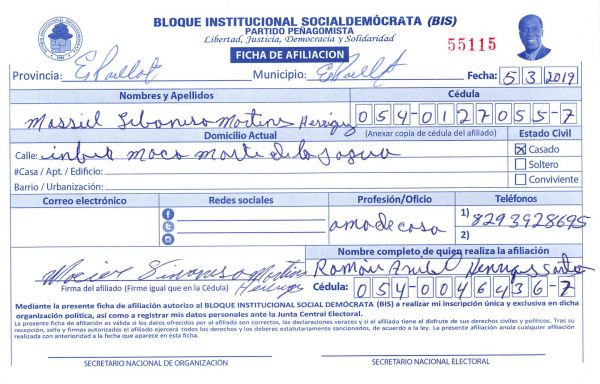 BLOQUE INSTITUCIONAL SOCIALDEMÓCRATA (BIS)
PARTIDO PEÑAGOMISTA
Libertad, Justicia, Democracia y Solidaridad
FICHA DE AFILIACION
55115
Provincia: Espaillat Municipio: Espaillat Fecha: 5 3 2019
Nombres y Apellidos Cédula
Massiel 054-0127055-7
Domicilio Actual (Anexar copia de cédula del afiliado) Estado Civil
Calle: moca
☒ Casado
#Casa / Apt. / Edificio: ☐ Soltero
Barrio / Urbanización: ☐ Conviviente
Correo electrónico Redes sociales Profesión/Oficio Teléfonos
ama de casa 1) 8293928695
2)
Nombre completo de quien realiza la afiliación
Román Anibal
Firma del afiliado (Firme igual que en la Cédula) Cédula: 054-0046436-7
Mediante la presente ficha de afiliación autorizo al BLOQUE INSTITUCIONAL SOCIAL DEMÓCRATA (BIS) a realizar mi inscripción única y exclusiva en dicha
organización política, así como a registrar mis datos personales ante la Junta Central Electoral.
La presente ficha de afiliación es válida si los datos ofrecidos por el afiliado son correctos, las declaraciones veraces y si el afiliado tiene el disfrute de sus derechos civiles y políticos. Tras su
recepción, sello y firmas autorizadas el afiliado ejercerá todos los derechos y los deberes estatutariamente sancionados, de acuerdo a la ley. La presente afiliación anula cualquier afiliación
realizada con anterioridad a la fecha que aparece en esta ficha.
SECRETARIO NACIONAL DE ORGANIZACIÓN SECRETARIO NACIONAL ELECTORAL